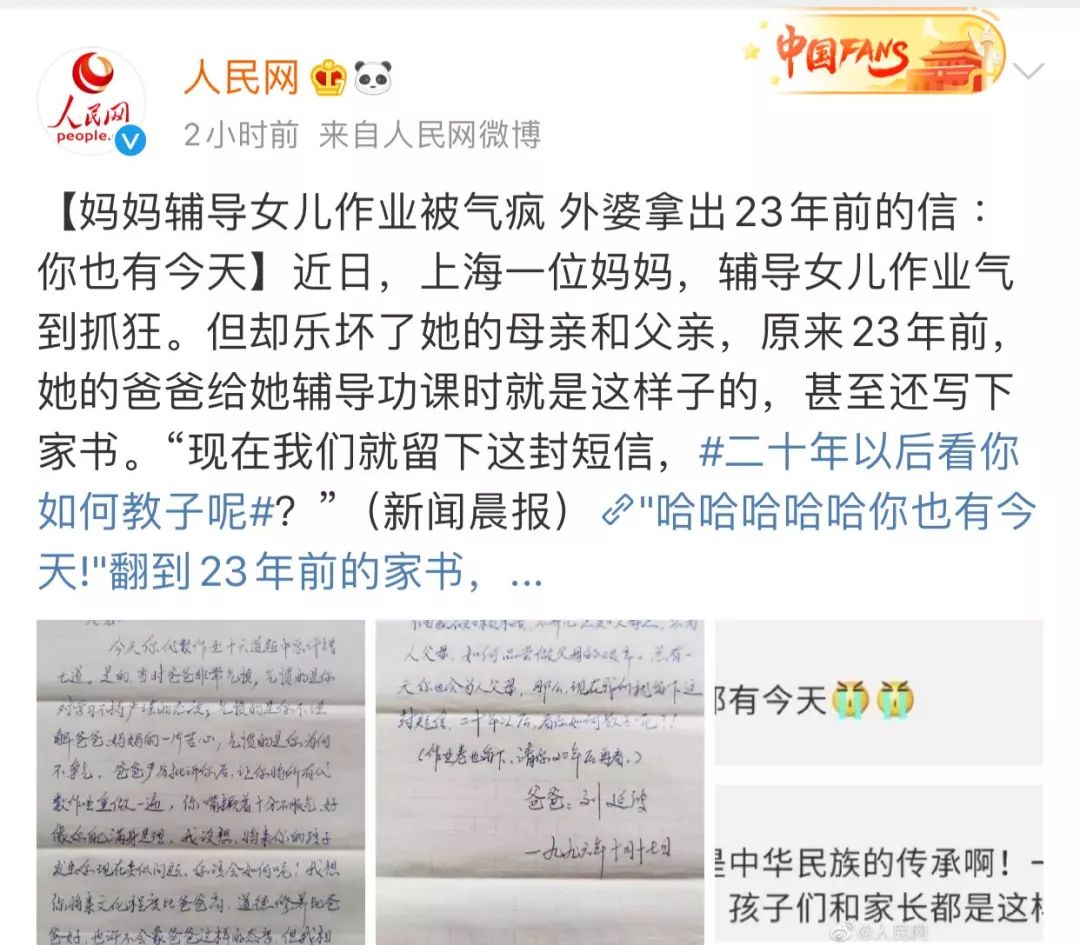 中国FANS
人民网
people.
人民网
2小时前 来自人民网微博
【妈妈辅导女儿作业被气疯 外婆拿出23年前的信：
你也有今天】近日，上海一位妈妈，辅导女儿作业气
到抓狂。但却乐坏了她的母亲和父亲，原来23年前，
她的爸爸给她辅导功课时就是这样子的，甚至还写下
家书。“现在我们就留下这封短信，#二十年以后看你
如何教子呢#？”（新闻晨报）"哈哈哈哈哈你也有今
天!"翻到23年前的家书，...
今天你代数作业十六道题中总计错
七道，是的，当时爸爸非常气愤，气愤的是你
对学习不持严谨的态度；气愤的是你不理
解爸爸、妈妈的一片苦心，气愤的是你为何
不争气。爸爸严厉批评你后，让你将所有代
数作业重做一遍，你嘴撅着十分不服气，好
像你的满身是理，我设想，将来你的孩子
发生你现在类似问题，你该会如何呢？我想
你将来文化程度比爸爸高，道德修养比爸
爸好，也许不会象爸爸这样的态度，但我相
人父母，如何品尝做父母的艰辛。总有一
天你也会为人父母，那么，现在我们就留下这
封短信，二十年以后，看你如何教子呢？！
（作业卷也留下，请你20年后再看。）
爸爸：刘延波
一九九六年十月十七日
都有今天😭😭
是中华民族的传承啊！一
孩子们和家长都是这样
@人民网